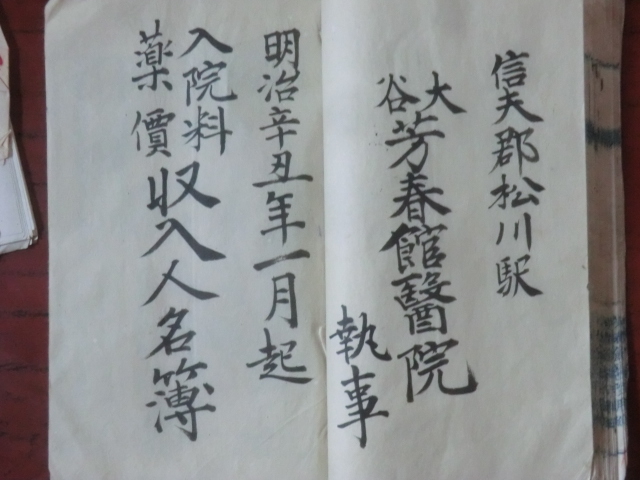 信夫郡松川駅
大谷芳春館醫院
執事
明治辛丑年一月起
入院料
薬價
収入人名簿